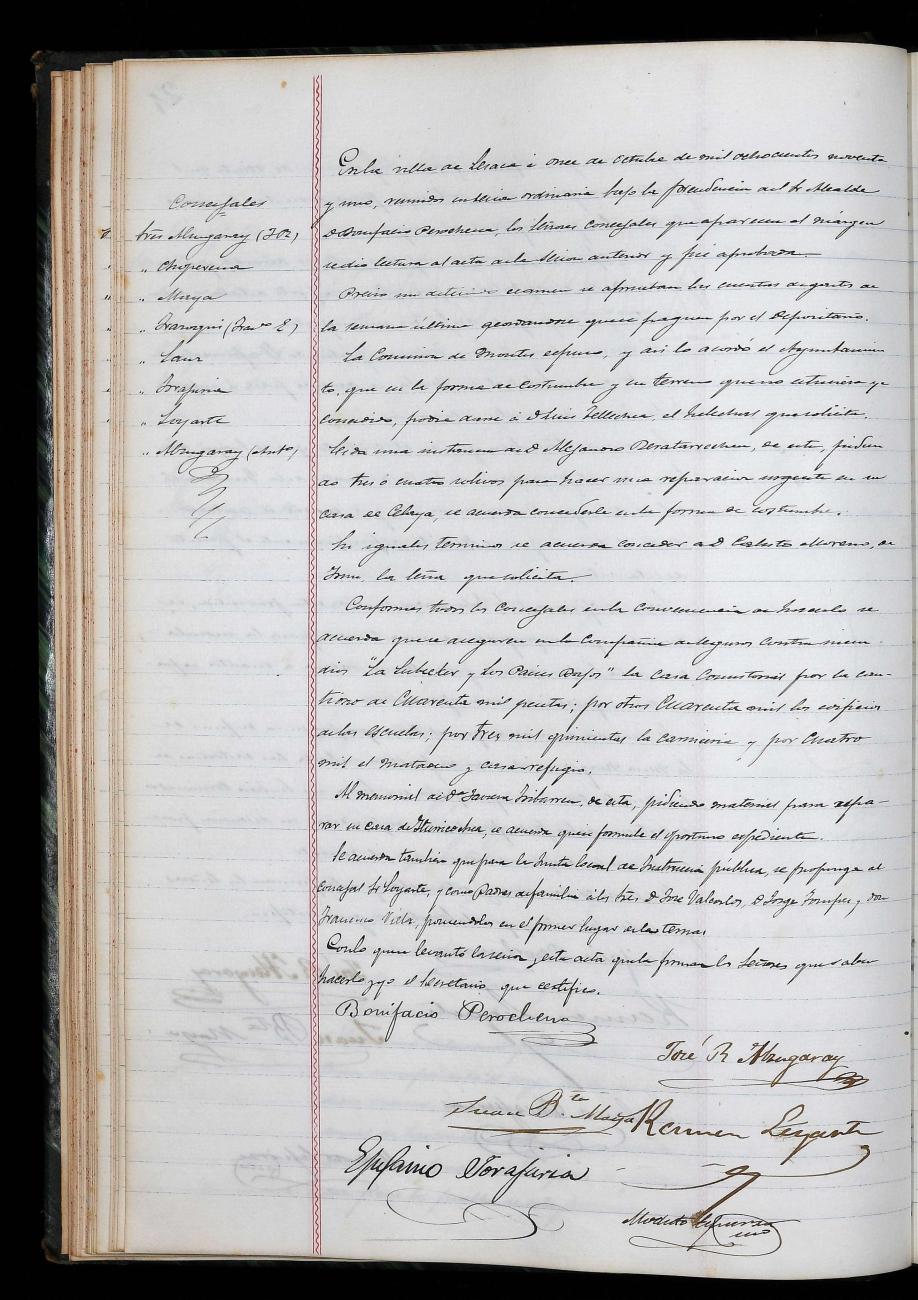 Concejales
Sres Alzugaray (José)
" Choperena
" Maya
" Iranzoqui (Fran.co E)
" Sanz
" Torajuria
" Loyarte
" Alzugaray (Anto)
En la villa de Lesaca á once de octubre de mil ochocientos noventa
y uno, reunidos en sesion ordinaria bajo la presidencia del Sr Alcalde
D Bonifacio Perochena, los Señores Concejales que aparecen al márgen
se dio lectura al acta de la sesion anterior y fué aprobada.
Previo un detenido examen se aprueban las cuentas de gastos de
la semana última acordandose que se paguen por el Depositario.
La Comision de Montes espuso, y asi lo acordó el Ayuntamien
to, que en la forma de costumbre y en terreno que no estuviese ya
concedido, podia darse á D Luis Tellechea, el helechal que solicita.
Leida una instancia de D Alejandro Peratarrechea, de esta, pidien
do tres ó cuatro robles para hacer una reparacion urgente en su
casa de Celaya, se acuerda concederle en la forma de costumbre.
En iguales terminos se acuerda conceder a D Calisto Moreno, de
Irun, la leña que solicita.
Conformes todos los Concejales en la conveniencia de hacerlo se
acuerda que se aseguren en la Compañia de Seguros contra incen-
dios "La Lubecker y Los Paises Bajos" la casa Consistorial por la can-
tidad de Cuarenta mil pesetas; por otros Cuarenta mil los edificios
de las escuelas; por tres mil quinientas la carniceria y por Cuatro
mil el matadero y casa refugio.
Al memorial de D.ª Javiera Iribarren, de esta, pidiendo material para repa-
rar su casa de Iturricochea, se acuerda que se formule el oportuno espediente.
Se acuerda tambien que para la Junta local de Instruccion pública, se proponga al
Concejal Sr Loyarte, y como Padres de familia á los tres D José Valcarlos, D Jorge y don
Francisco Villa, poniendolos en el primer lugar de la terna.
Con lo que se levantó la sesion y esta acta que la firman los Señores que saben
hacerlo y yo el Secretario, que certifico.
Bonifacio Perochena
José R Alzugaray
Juan B.ta Maya
Ramon Loyarte
Epifanio Torajuria
Modesto